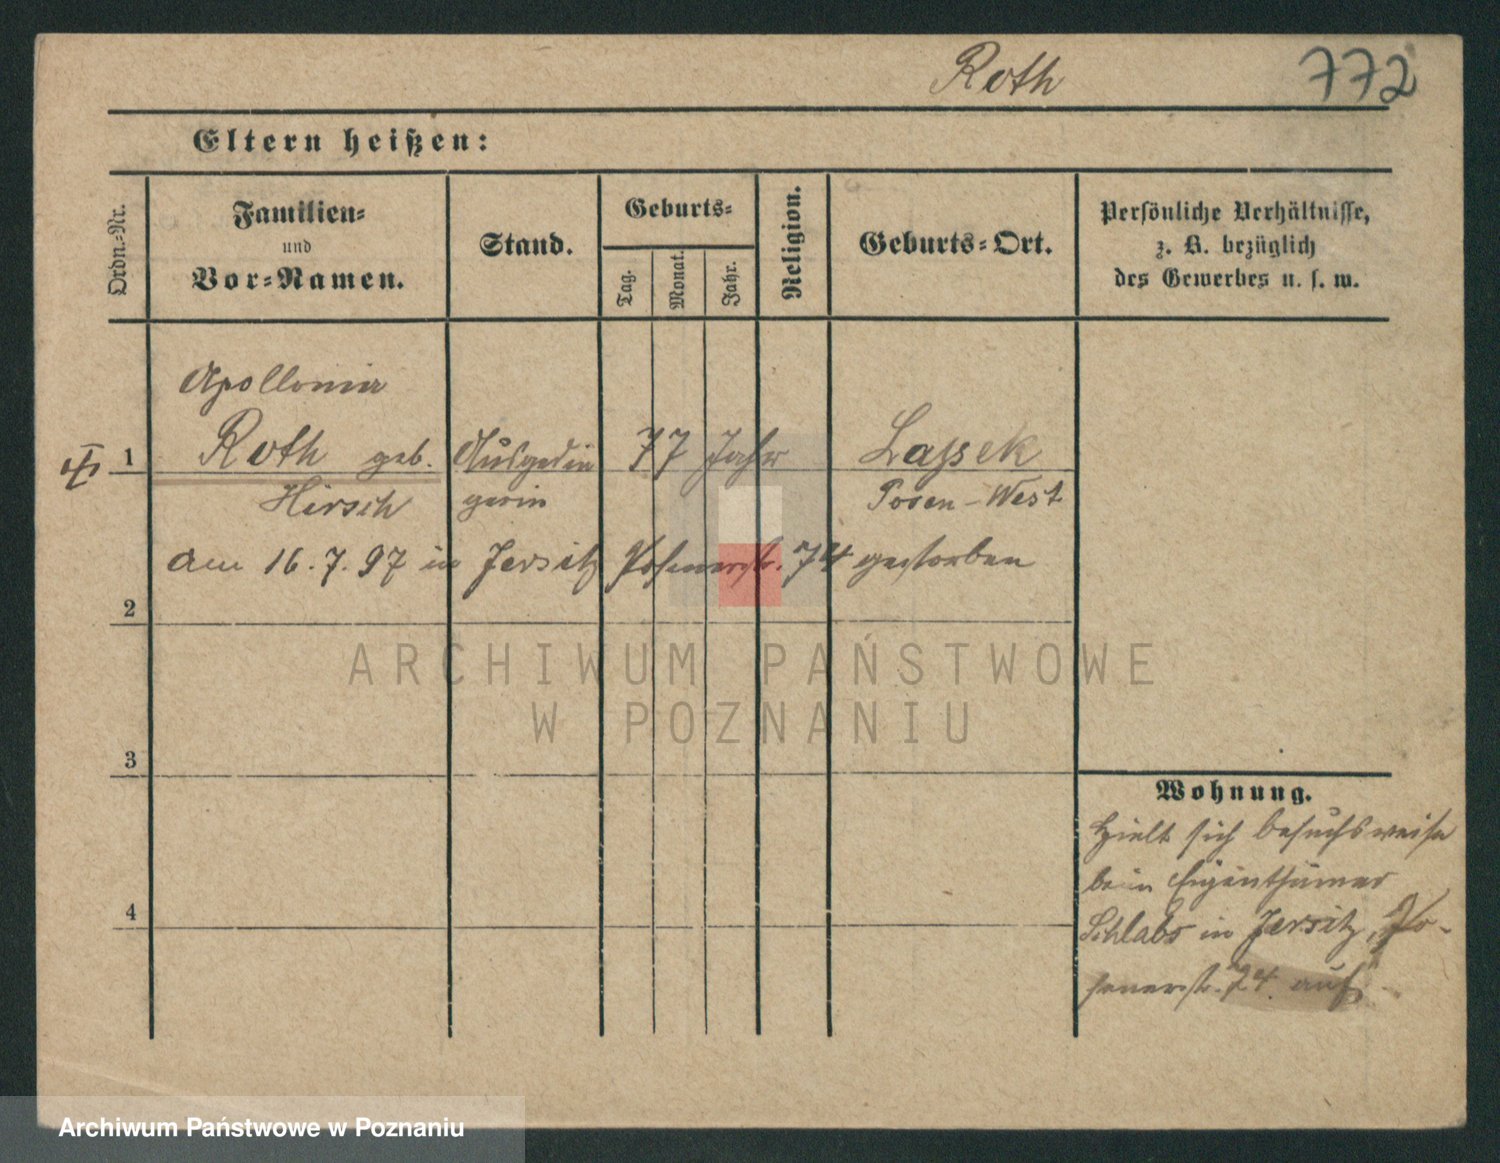 Roth 772
Eltern heißen:
Ordn.-Nr.
Familien-
und
Vor-Namen.
Stand.
Geburts-
Tag.
Monat.
Jahr.
Religion.
Geburts-Ort.
Persönliche Verhältnisse,
z. B. bezüglich
des Gewerbes u. s. w.
Apollonia
1 Roth geb. Ausgedin 77 Jahr Lassek
Hirsch gerin Posen-West
am 16.7.97 in Jersitz Posenerstr. 74 gestorben
2
ARCHIWUM PAŃSTWOWE
W POZNANIU
3
Wohnung.
Hielt sich besuchsweise
beim Eigenthümer
4
Schlabs in Jersitz, Po-
senerstr. 74 auf
Archiwum Państwowe w Poznaniu